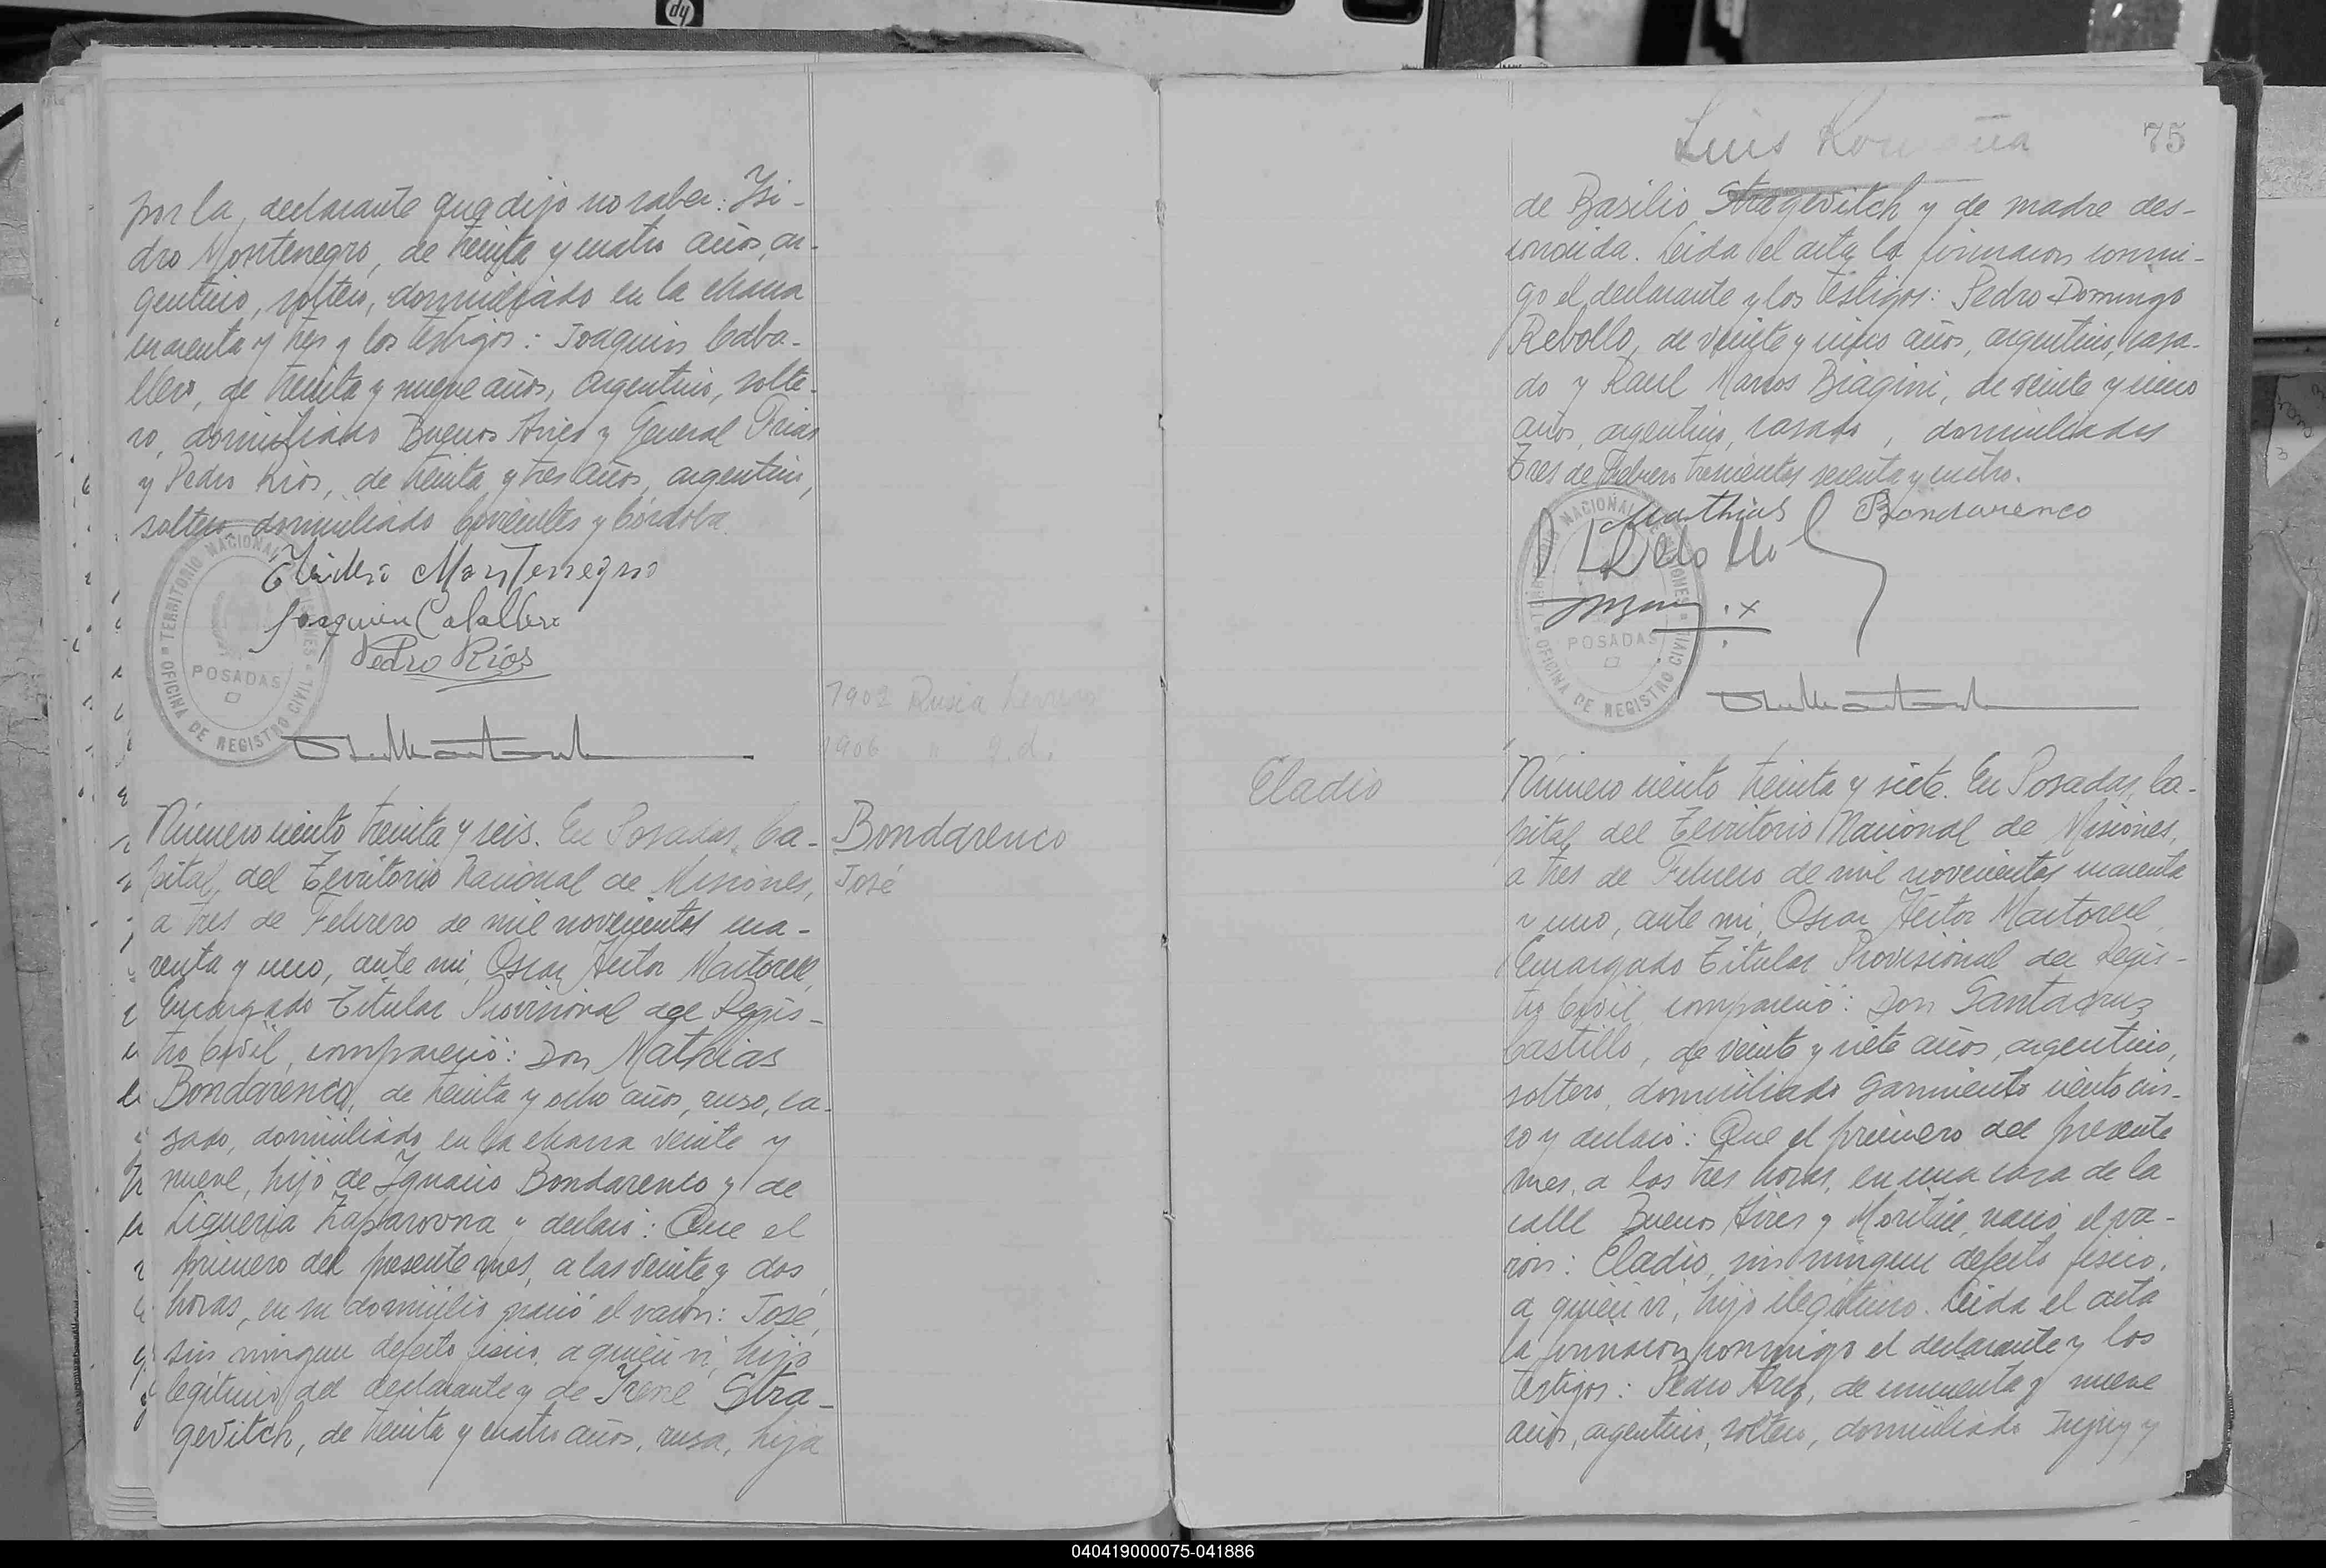 por la declarante que dijo no saber: Ysi-
dro Montenegro, de treinta y cuatro años, ar-
gentino, soltero, domiciliado en la chacra
cuarenta y tres y los testigos: Joaquin Caba-
llero, de treinta y nueve años, argentino, solte-
ro, domiciliado Buenos Aires y General Frias
y Pedro Rios, de treinta y tres años, argentino,
soltero, domiciliado Corrientes y Córdoba.
Montenegro
Joaquin Caballero
Pedro Ríos
TERRITORIO NACIONAL
POSADAS
OFICINA DE REGISTRO CIVIL
1902 Rusia
1906 " g.d.
Número ciento treinta y seis. En Posadas, Ca-
pital, del Territorio Nacional de Misiones,
a tres de Febrero de mil novecientos cua-
renta y uno, ante mi, Oscar Héctor Martorell,
Encargado Titular Provisional del Regis-
tro Civil, compareció: Don Mathias
Bondarenco, de treinta y ocho años, ruso, ca-
sado, domiciliado en la chacra veinte y
nueve, hijo de Ignacio Bondarenco y de
Ligueria Zaparovna y declaró: Que el
primero del presente mes, a las veinte y dos
horas, en su domicilio nació el varón: José,
sin ningun defecto fisico, a quién vi, hijo
legitimo del declarante y de Irene Stra-
gevitch, de treinta y cuatro años, rusa, hija
Bondarenco
José
Luis
75
de Basilio Stragevitch y de madre des-
conocida. Leida el acta la firmaron conmi-
go el declarante y los testigos: Pedro Domingo
Rebollo, de veinte y cinco años, argentino, casa-
do y Raul Marcos Biagini, de veinte y cinco
años, argentino, casado, domiciliados
Tres de Febrero trescientos setenta y cuatro.
Mathias Bondarenco
Rebollo
NACIONAL
POSADAS
OFICINA DE REGISTRO CIVIL
Eladio
Número ciento treinta y siete. En Posadas, Ca-
pital, del Territorio Nacional de Misiones,
a tres de Febrero de mil novecientos cuarenta
y uno, ante mi, Oscar Héctor Martorell,
Encargado Titular Provisional del Regis-
tro Civil, compareció: Don Santacruz
Castillo, de veinte y siete años, argentino,
soltero, domiciliado Sarmiento ciento cin-
co y declaró: Que el primero del presente
mes, a las tres horas, en una casa de la
calle Buenos Aires y Moritán, nació el va-
rón: Eladio, sin ningun defecto fisico,
a quién vi, hijo ilegitimo. Leida el acta
la firmaron conmigo el declarante y los
testigos: Pedro Arez, de cincuenta y nueve
años, argentino, soltero, domiciliado Jujuy y
040419000075-041886